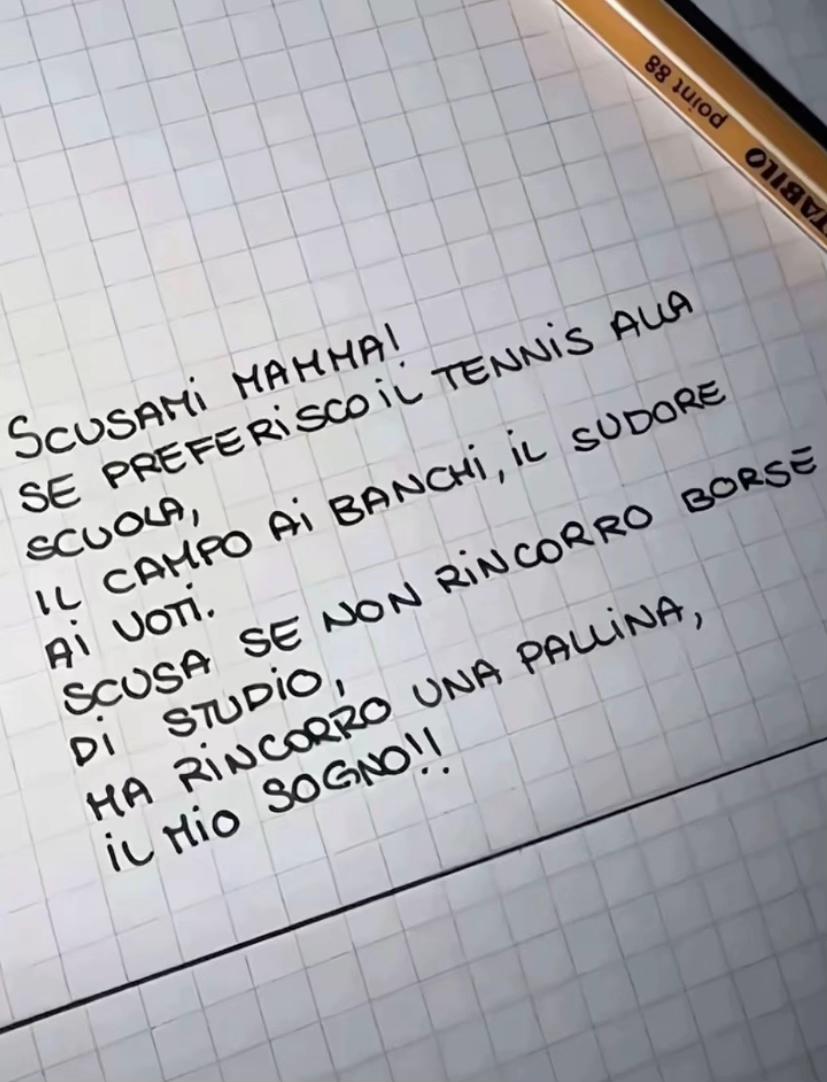 point 88
STABILO
SCUSAMI MAMMA!
SE PREFERISCO IL TENNIS ALLA
SCUOLA,
IL CAMPO AI BANCHI, IL SUDORE
AI VOTI.
SCUSA SE NON RINCORRO BORSE
DI STUDIO,
MA RINCORRO UNA PALLINA,
IL MIO SOGNO!!